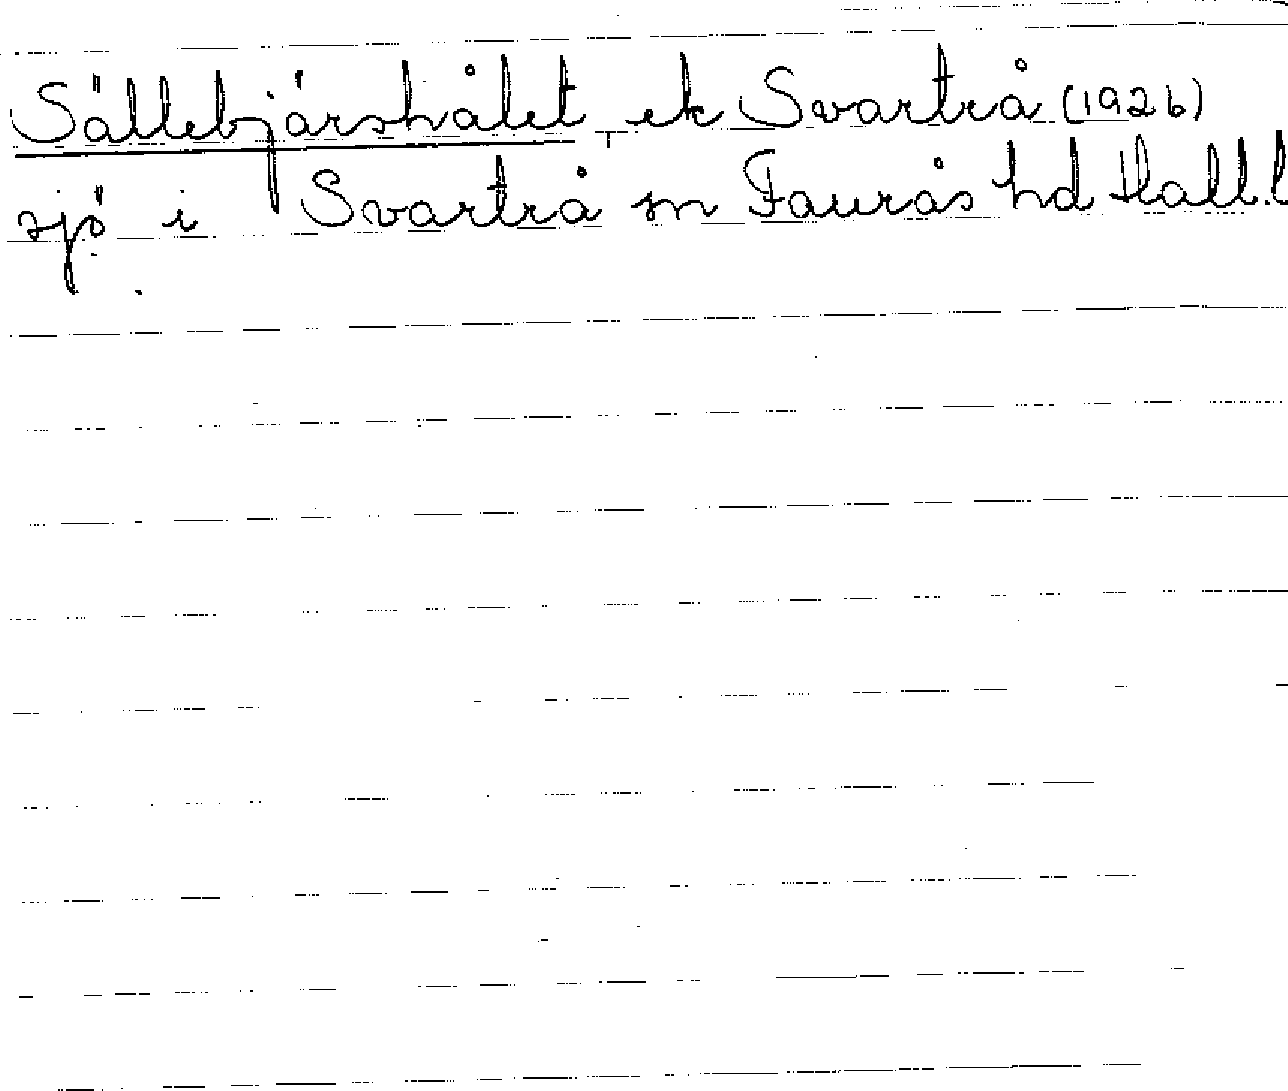 Sällebjärshålet ek Svartrå (1926)
sjö i Svartrå sn Faurås hd Hall.l